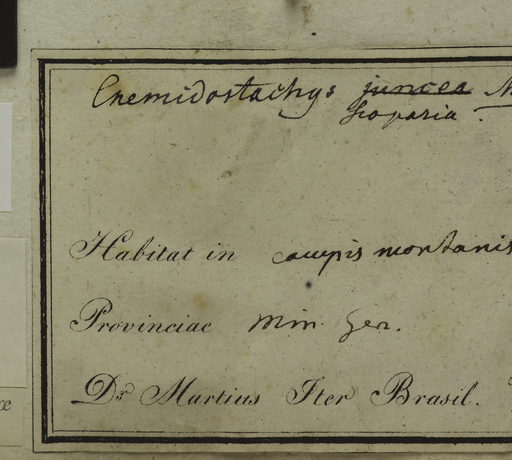 Cnemidostachys juncea M
scoparia.
Habitat in campis montanis
Provinciae Min. Ger.
Dr. Martius Iter Brasil.
æ